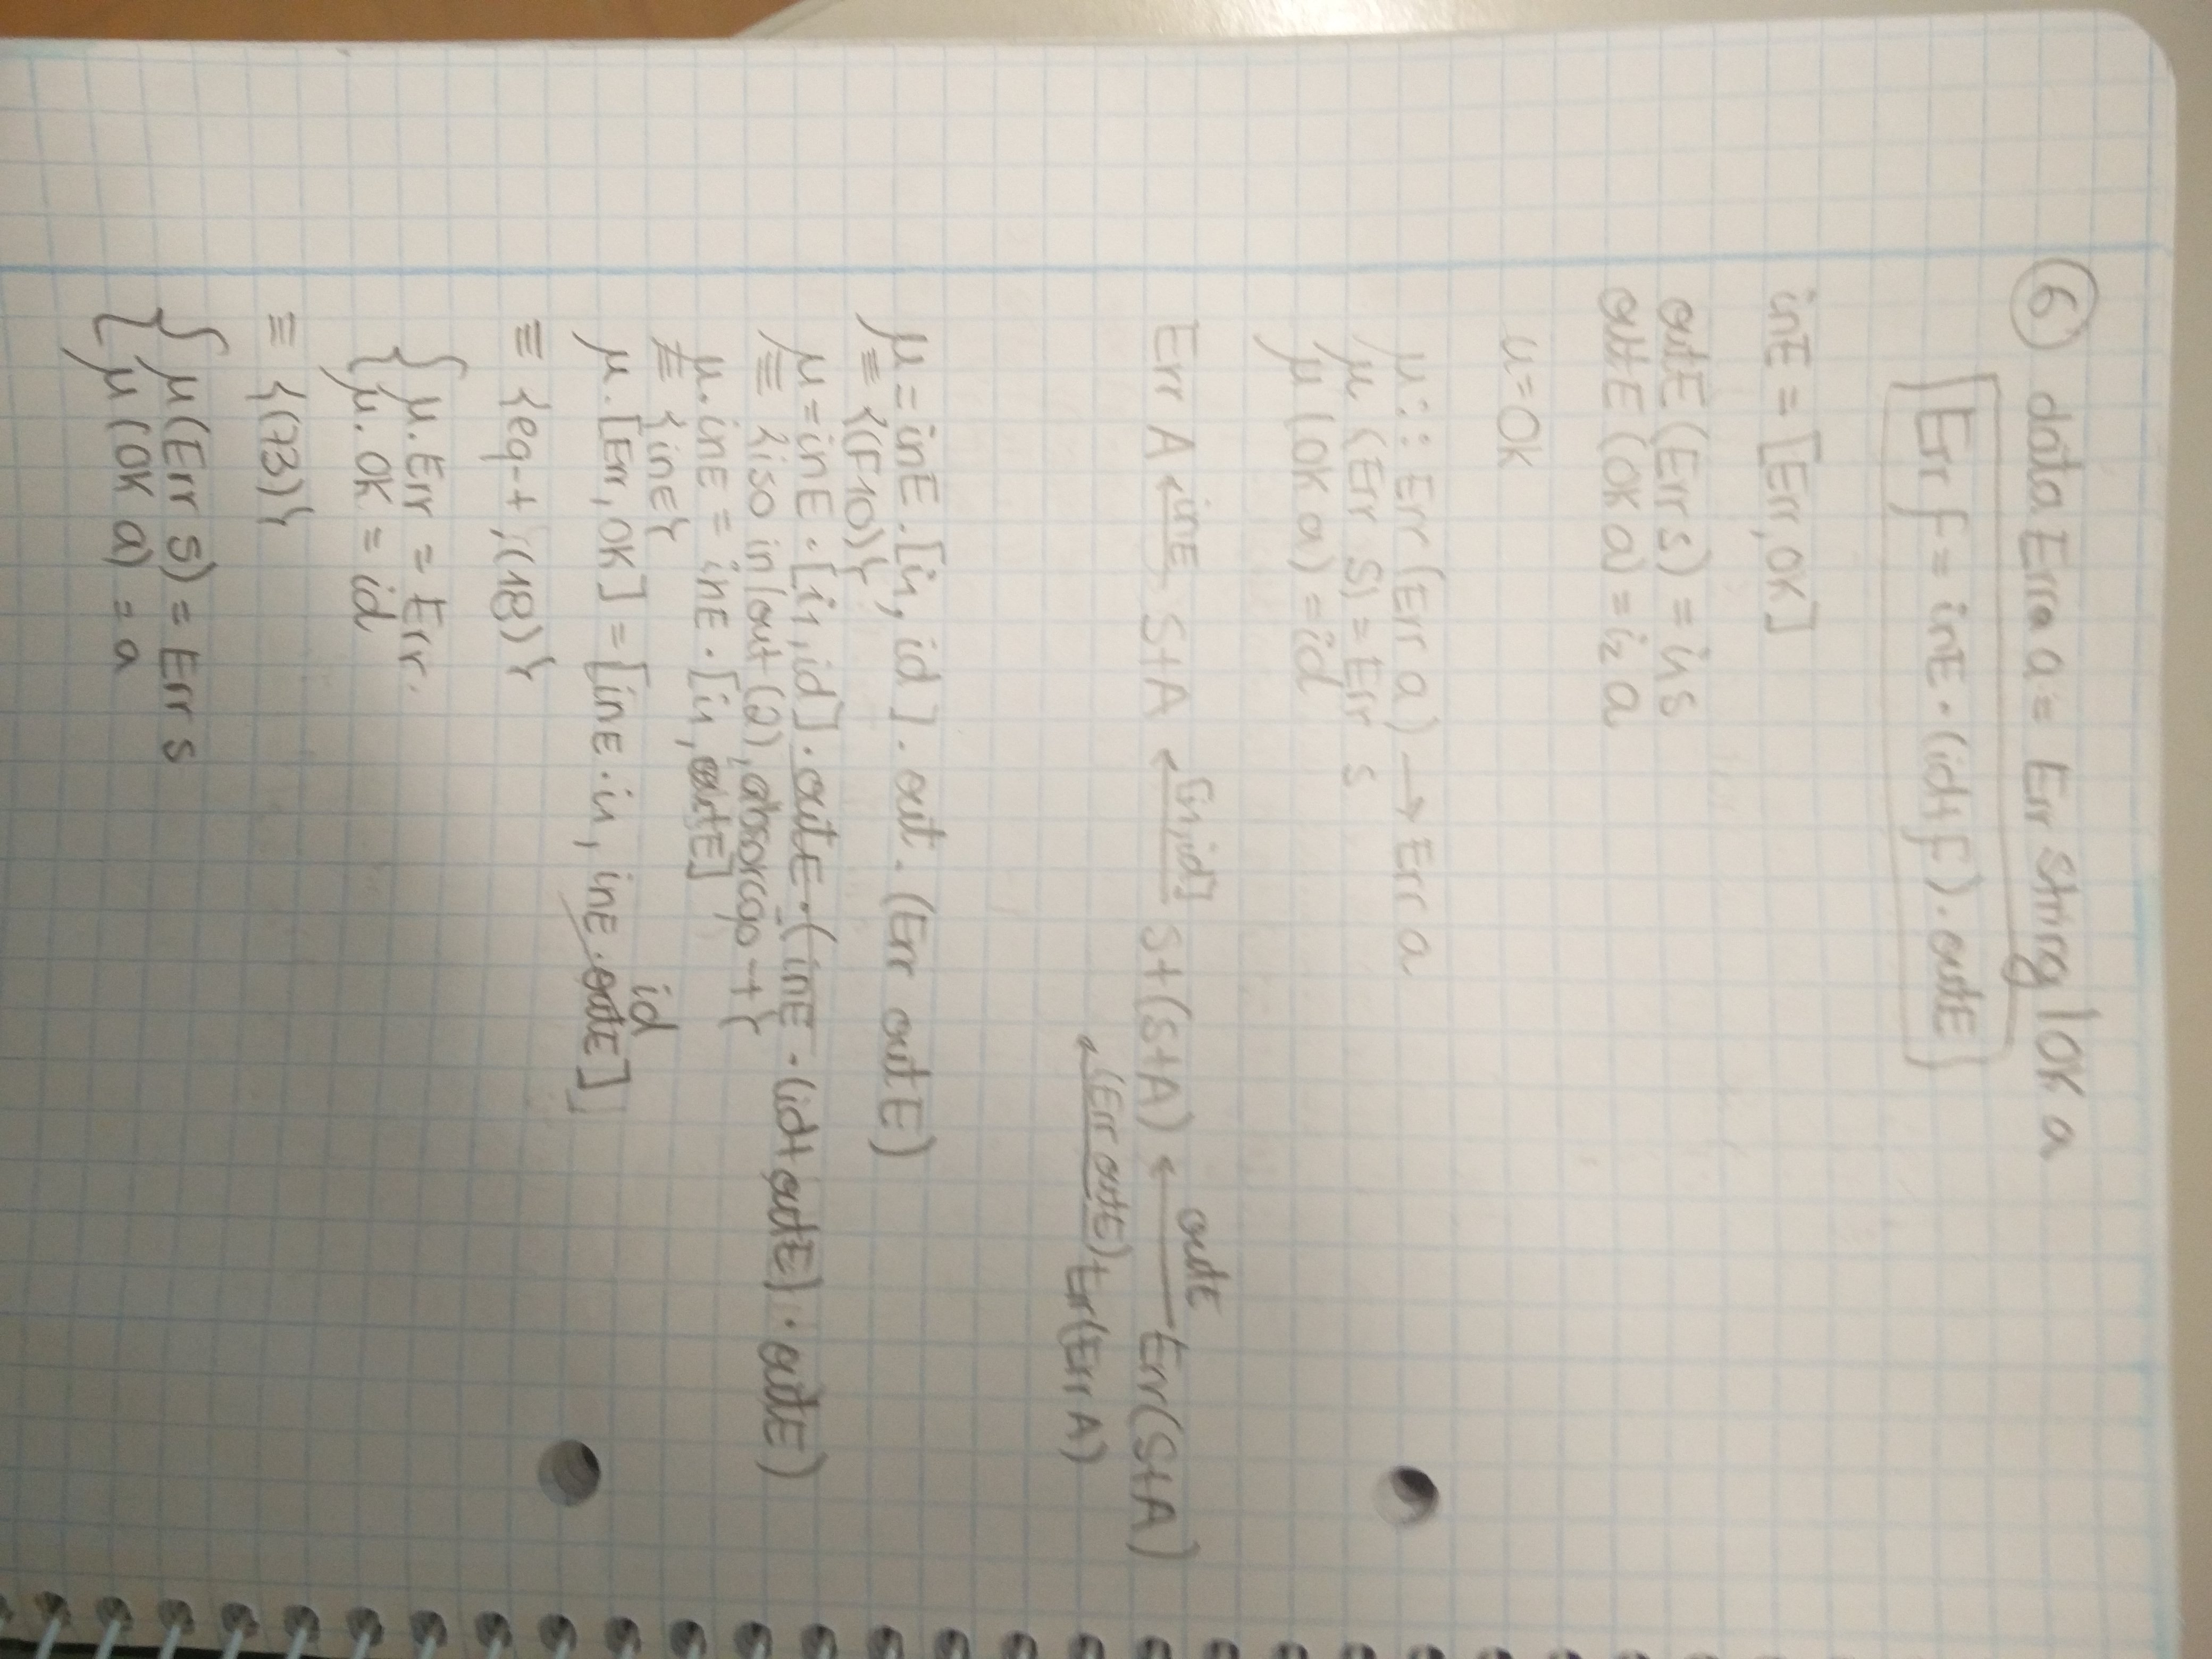 ⑥ data Erra a = Err String | OK a
Err f = inE · (id+f) · outE
inE = [Err, OK]
outE (Err s) = i₁ s
outE (OK a) = i₂ a
u = OK
μ :: Err (Err a) → Err a
μ (Err S) = Err s
μ (OK a) = id
Err A ←inE S+A ←[i₁,id] S+(S+A) ←outE Err(S+A)
←(Err outE) Err(Err A)
μ = inE . [i₁, id] . out . (Err outE)
≡ {(F10)}
μ = inE · [i₁, id] · outE · (inE · (id+outE) · outE)
≡ {iso in/out (2), absorção-+}
μ. inE = inE · [i₁, outE]
≡ {inE}
id
μ. [Err, OK] = [inE · i₁, inE · outE]
≡ {eq-+, (18)}
{ μ. Err = Err.
{ μ. OK = id
≡ {(73)}
{ μ (Err S) = Err s
{ μ (OK a) = a